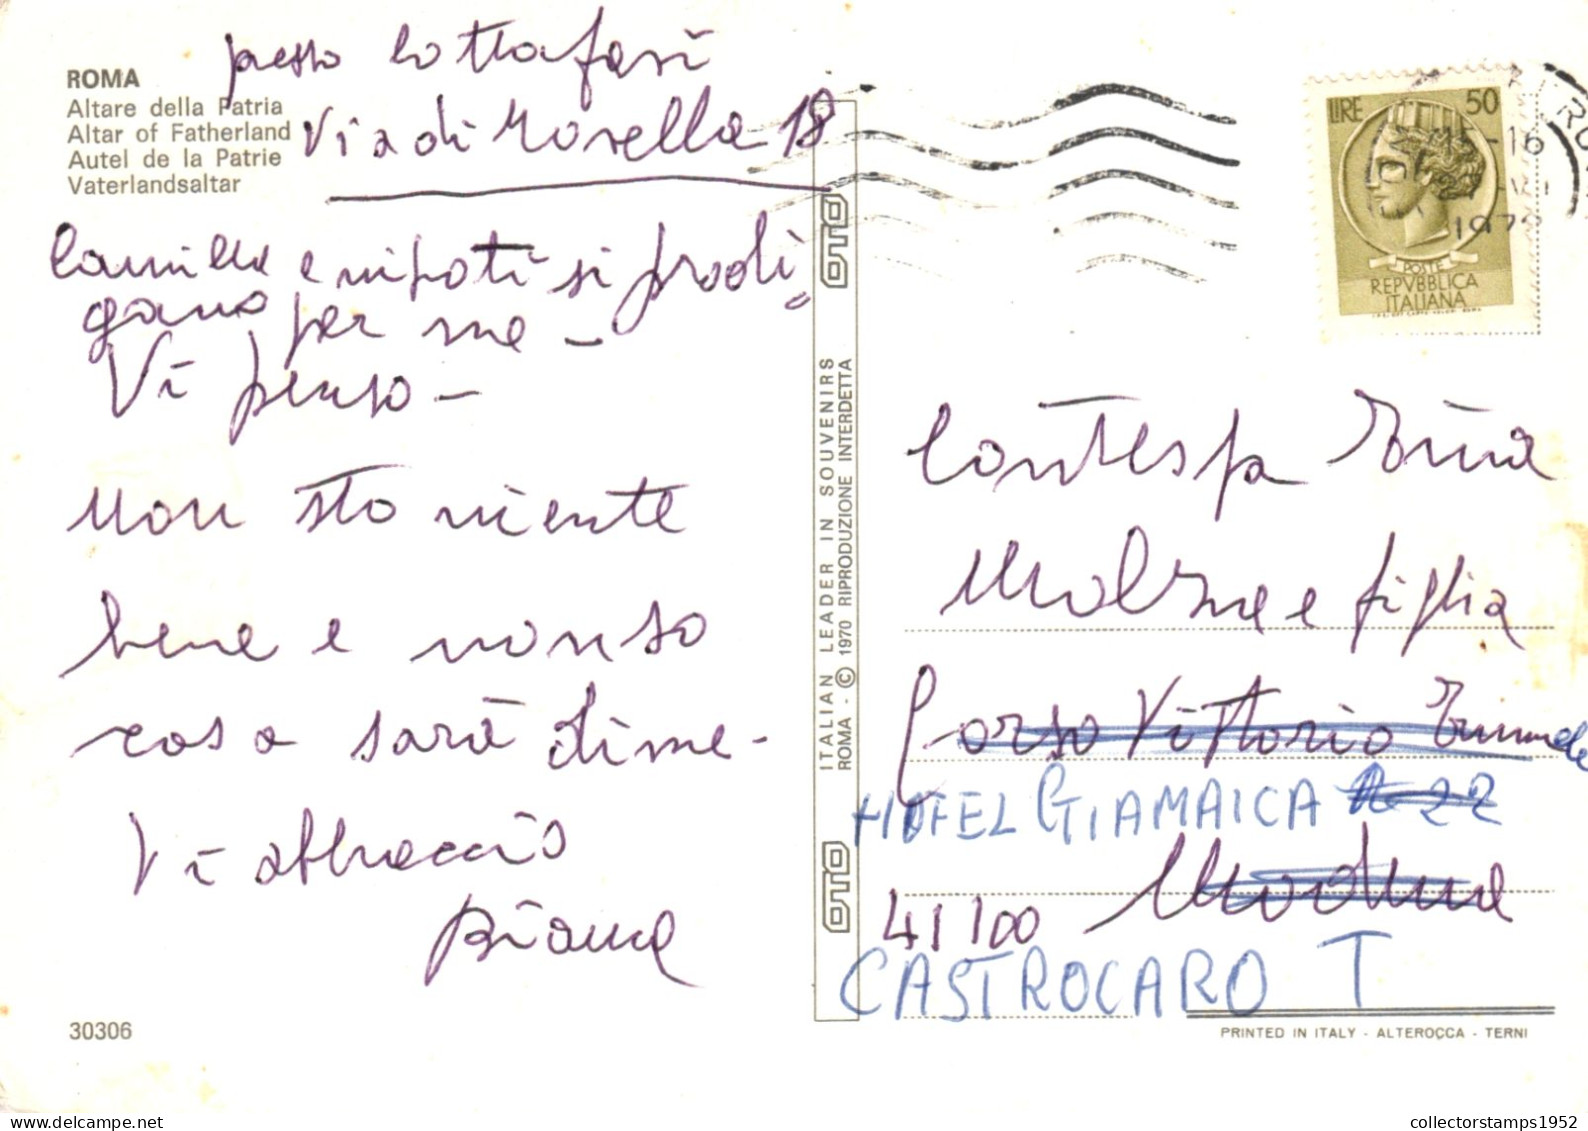 ROMA
Altare della Patria
Altar of Fatherland
Autel de la Patrie
Vaterlandsaltar
presso Cottafavi
Via di Morella 18
Camilla e nipoti si prodi=
gano per me -
Vi penso -
Non sto niente
bene e non so
cosa sarà di me -
Vi abbraccio
ITALIAN LEADER IN SOUVENIRS
ROMA - © 1970 RIPRODUZIONE INTERDETTA
OTO
OTO
LIRE 50
15-16
POSTE
REPVBBLICA
ITALIANA
Contessa
e figlia
Corso Vittorio Emanuele
HOTEL GIAMAICA 22
41100 Modena
CASTROCARO T
30306
PRINTED IN ITALY - ALTEROCCA - TERNI
collectorstamps1952